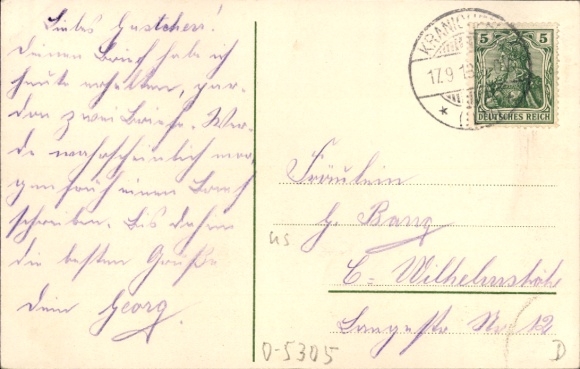 Liebes Gustchen!
Deinen Brief hab ich
heute erhalten, par-
don zwei Briefe. Wer-
de wahrscheinlich mor-
gen früh einen Brief
schreiben. Bis dahin
die besten Grüße
Dein Georg.
5 5
DEUTSCHES REICH
17.9.13
Fräulein
G. Bang
C.-Wilhelmshöhe
Langestr. No 12
us
0-5305
D